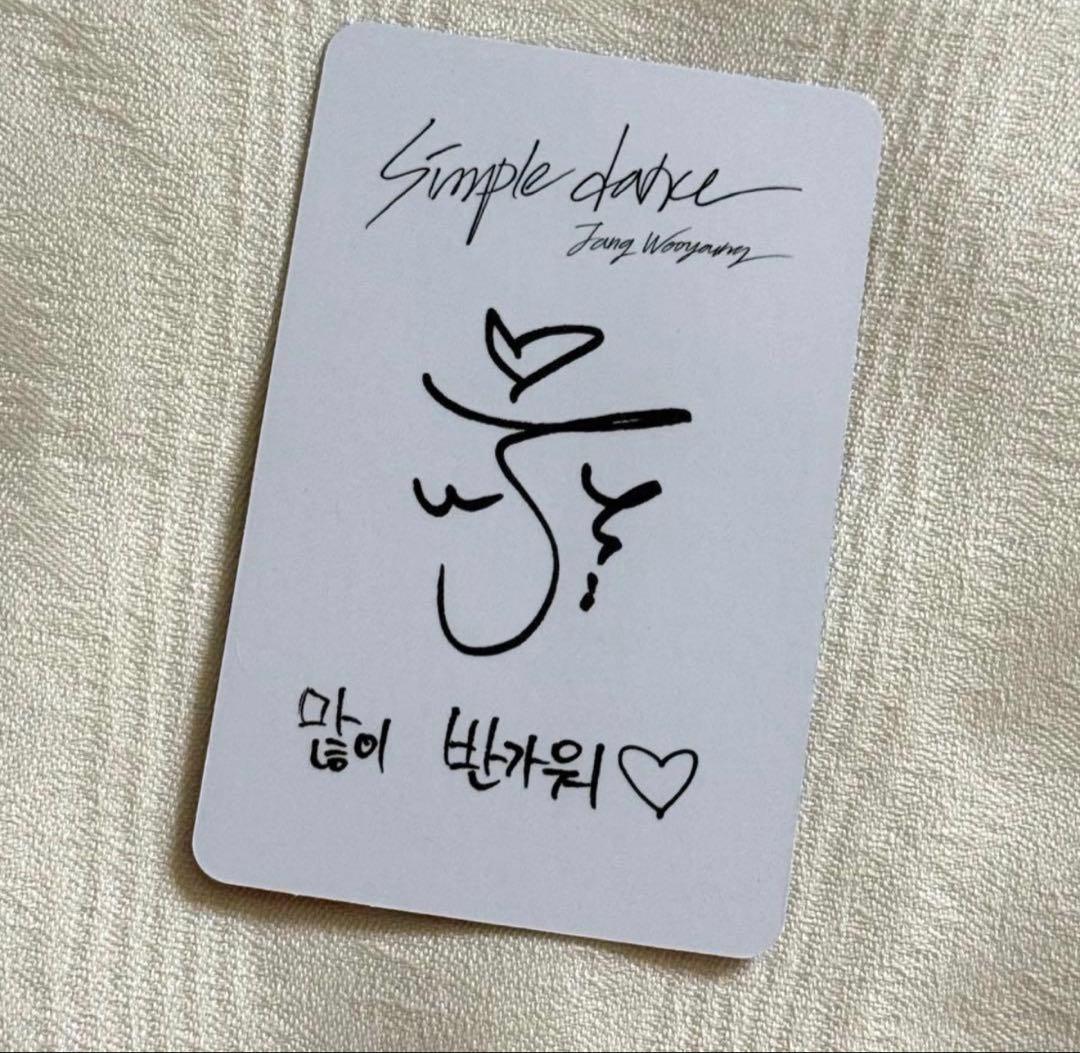 Simple dance
Jang Wooyoung
많이 반가워♡